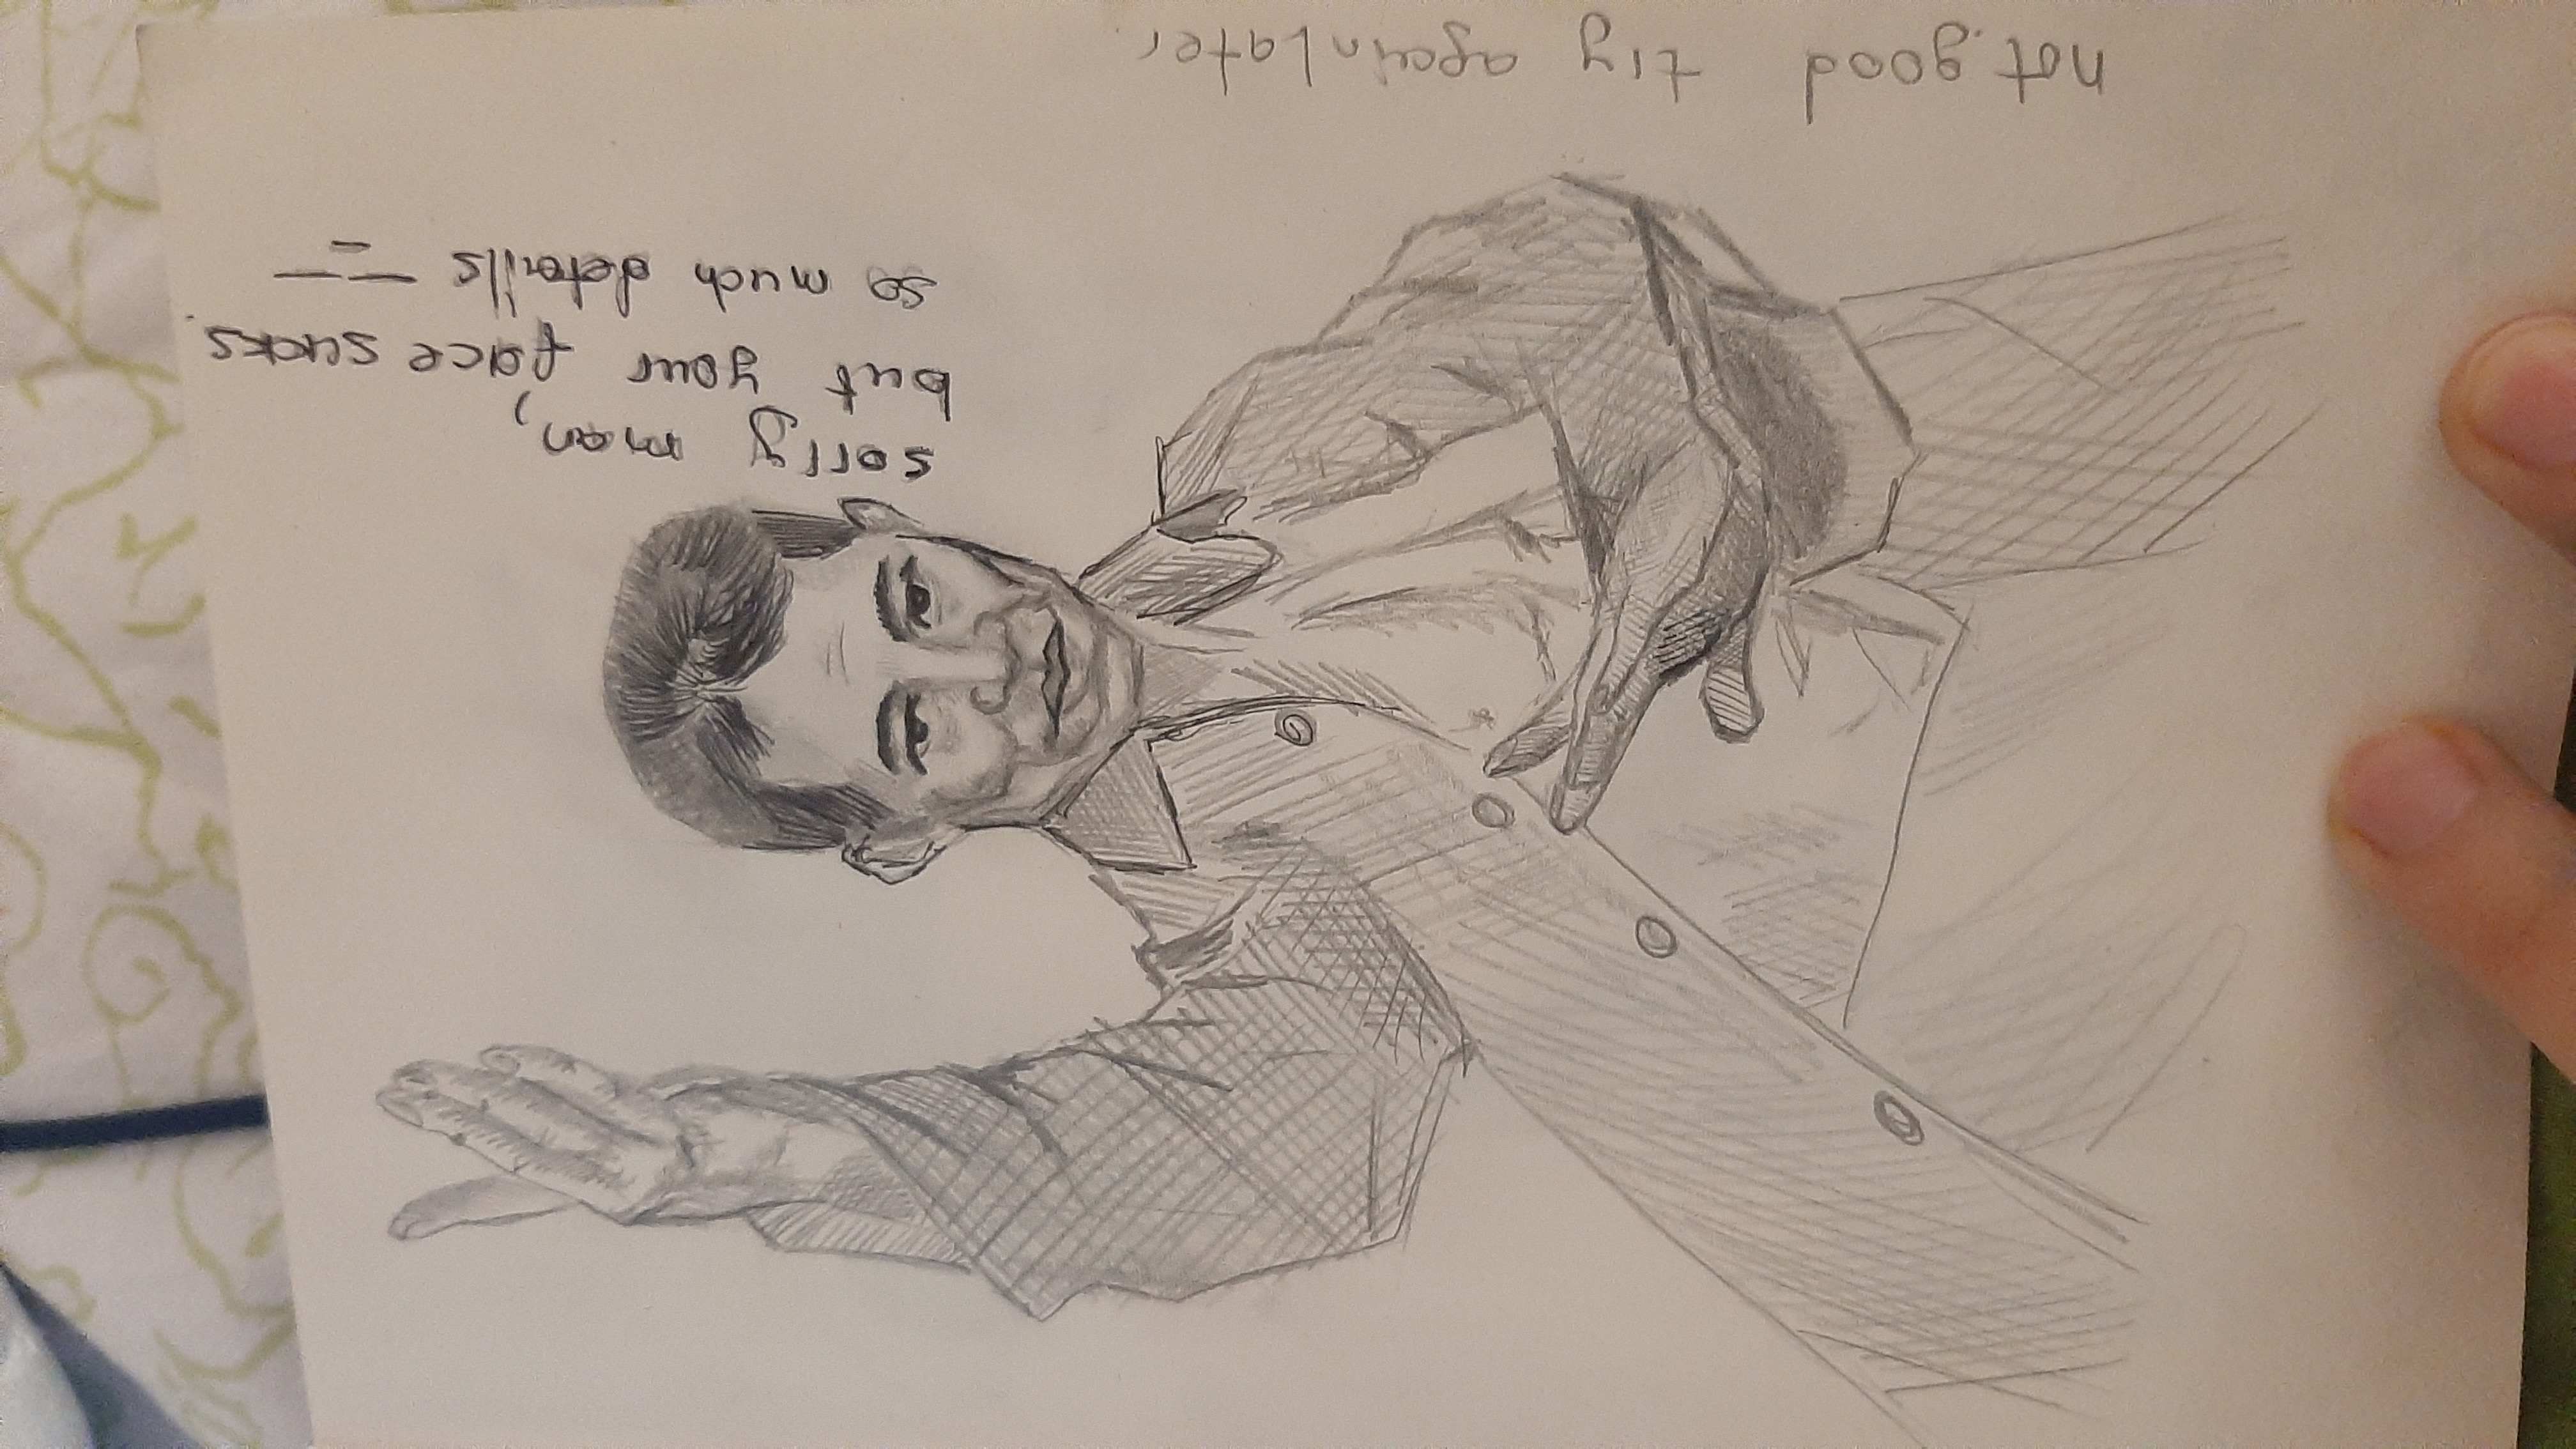 sorry man,
but your face sucks.
so much details
not.good try again later.